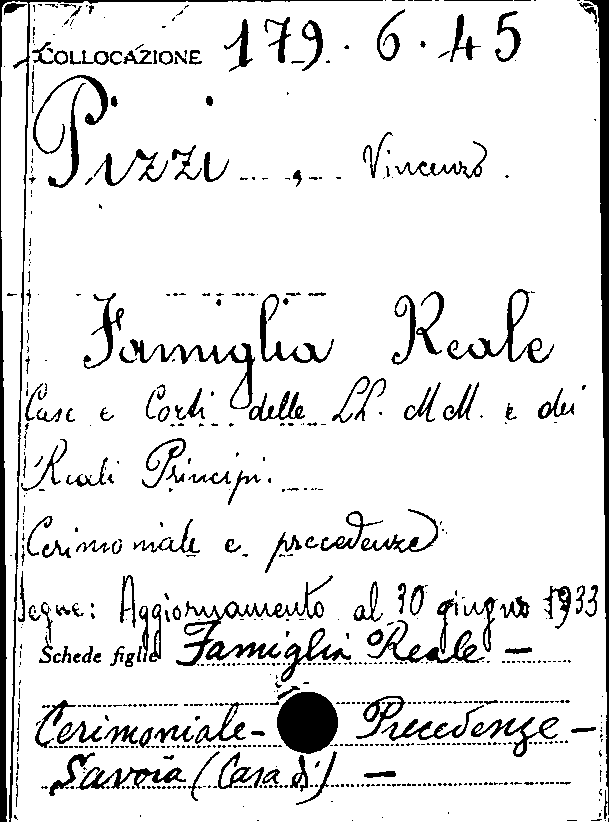 COLLOCAZIONE 179.6.45
Pizzi, Vincenzo.
Famiglia Reale
Case e Corti delle LL. MM. e dei
Reali Principi.
Cerimoniale e precedenze
Segue: Aggiornamento al 30 giugno 1933
Schede figlie Famiglia Reale —
Cerimoniale - Precedenze -
Savoia (Casa di) —